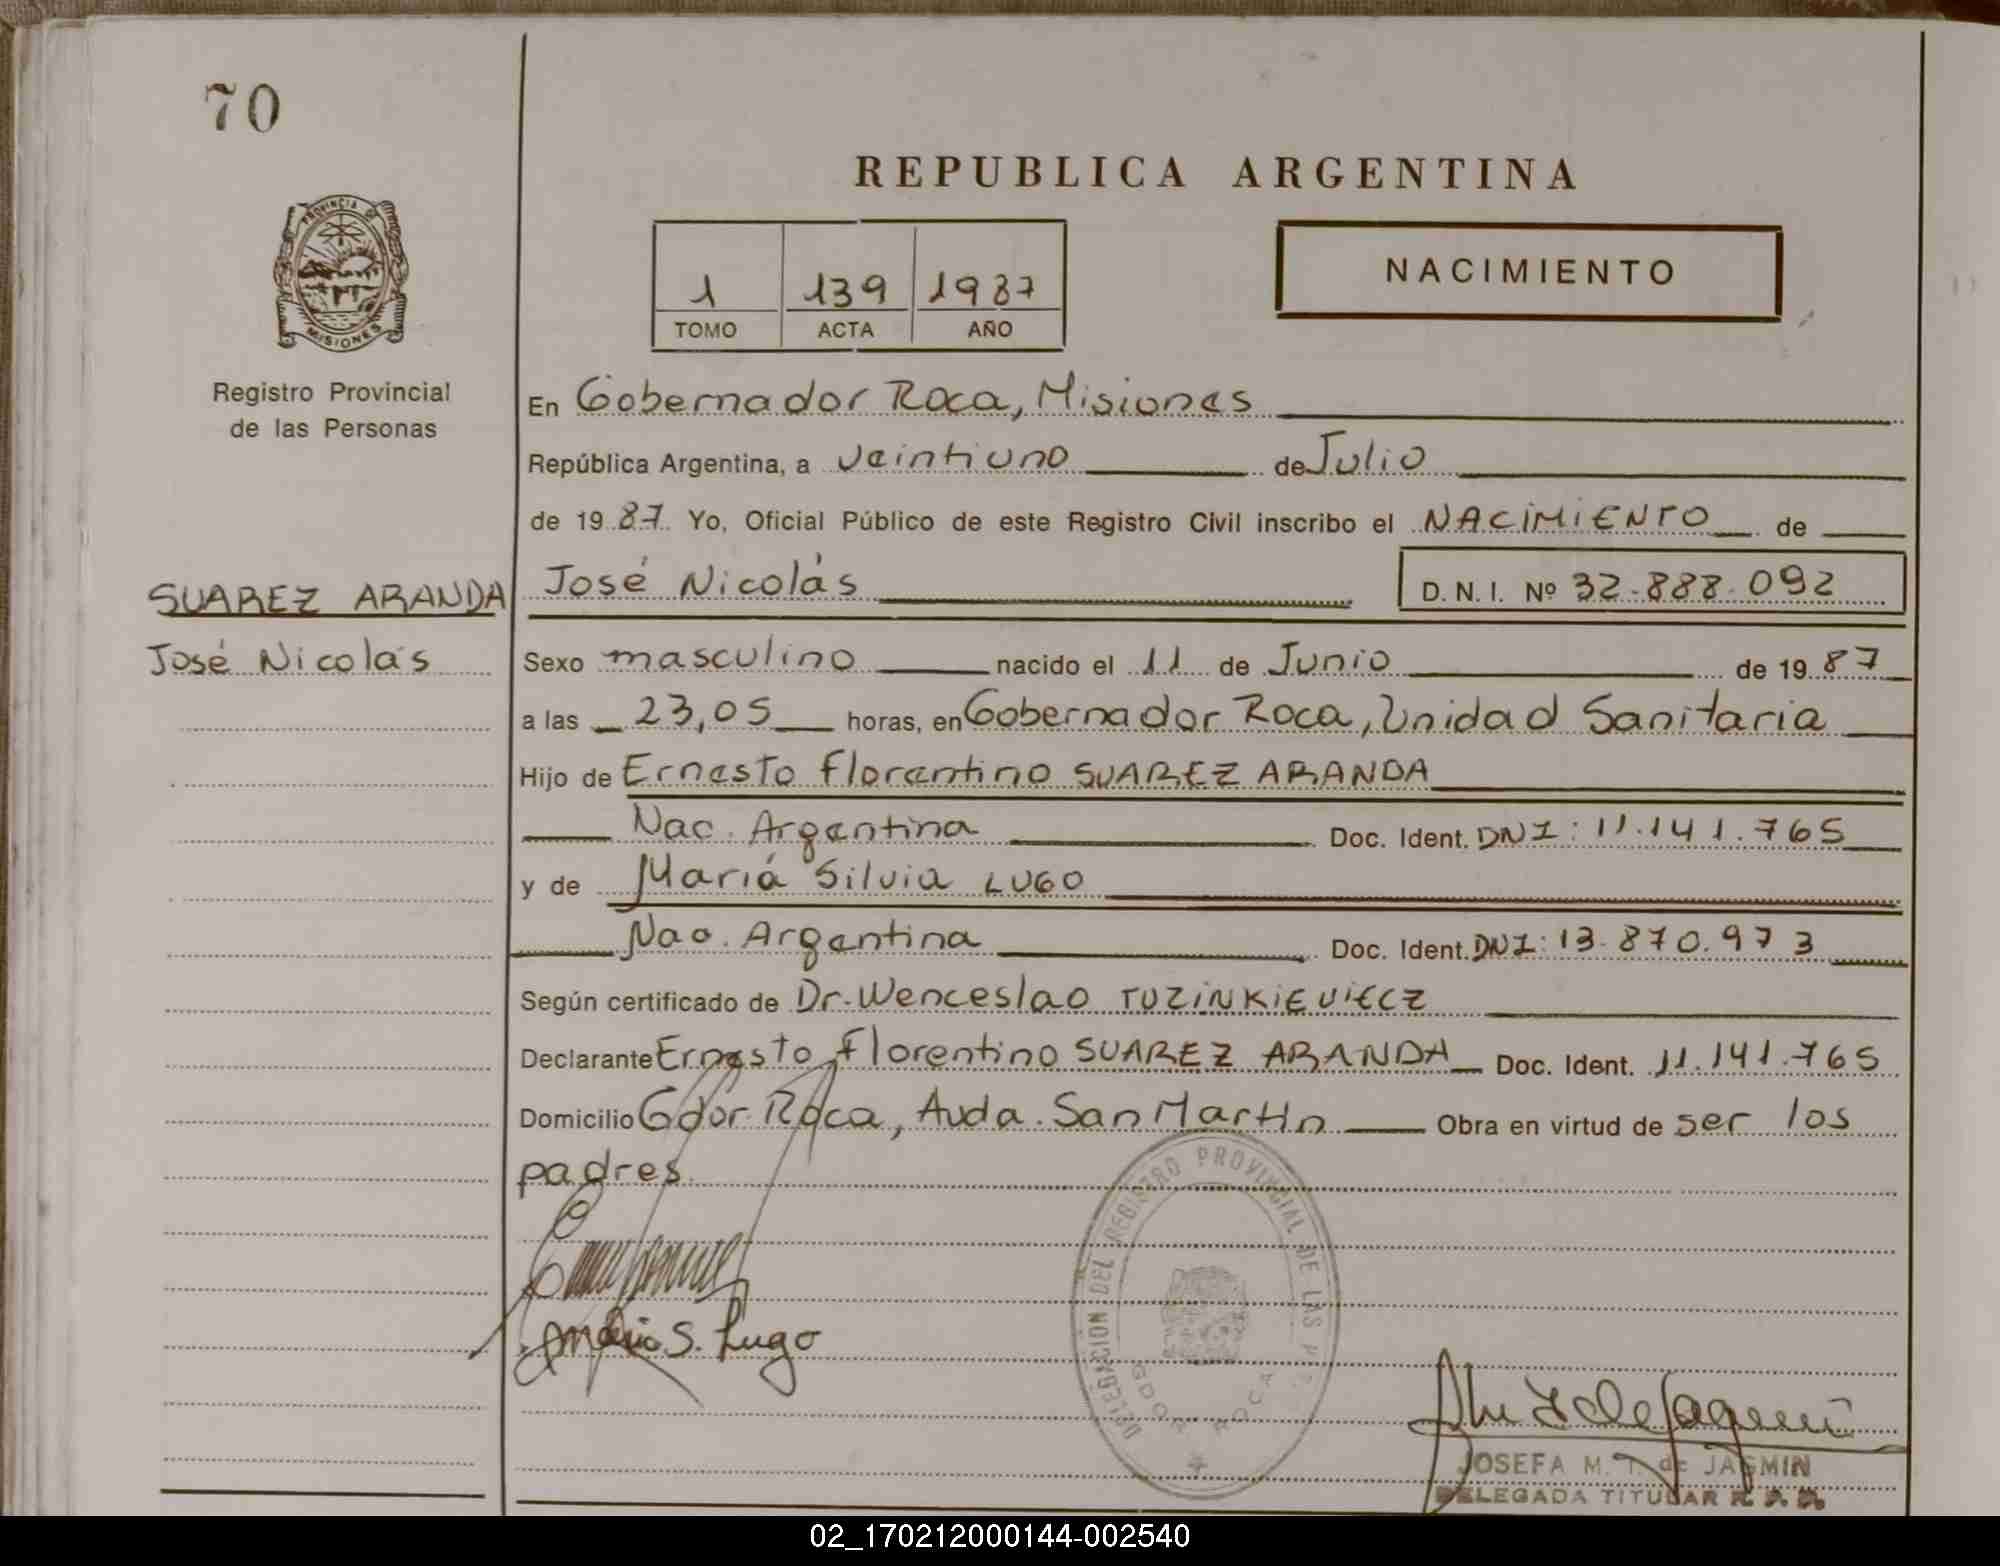 70
REPUBLICA ARGENTINA
PROVINCIA DE
MISIONES
1 139 1987
TOMO ACTA AÑO
NACIMIENTO
Registro Provincial
de las Personas
En Gobernador Roca, Misiones
República Argentina, a veintiuno de Julio
de 19 87 Yo, Oficial Público de este Registro Civil inscribo el NACIMIENTO de
SUAREZ ARANDA José Nicolás D. N. I. Nº 32-888-092
José Nicolás Sexo masculino nacido el 11 de Junio de 19 87
a las 23,05 horas, en Gobernador Roca, Unidad Sanitaria
Hijo de Ernesto Florentino SUAREZ ARANDA
Nac. Argentina Doc. Ident. DNI: 11.141.765
y de Mariá Silvia LUGO
Nac. Argentina Doc. Ident. DNI: 13.870.973
Según certificado de Dr. Wenceslao TUZINKIEVIECZ
Declarante Ernesto Florentino SUAREZ ARANDA Doc. Ident. 11.141.765
Domicilio Gdor. Roca, Avda. San Martín Obra en virtud de ser los
padres.
DELEGACION DEL REGISTRO PROVINCIAL DE LAS
GDOR. ROCA
S. Lugo
JOSEFA M. T. de JASMIN
DELEGADA TITULAR R. P. P.
02_170212000144-002540